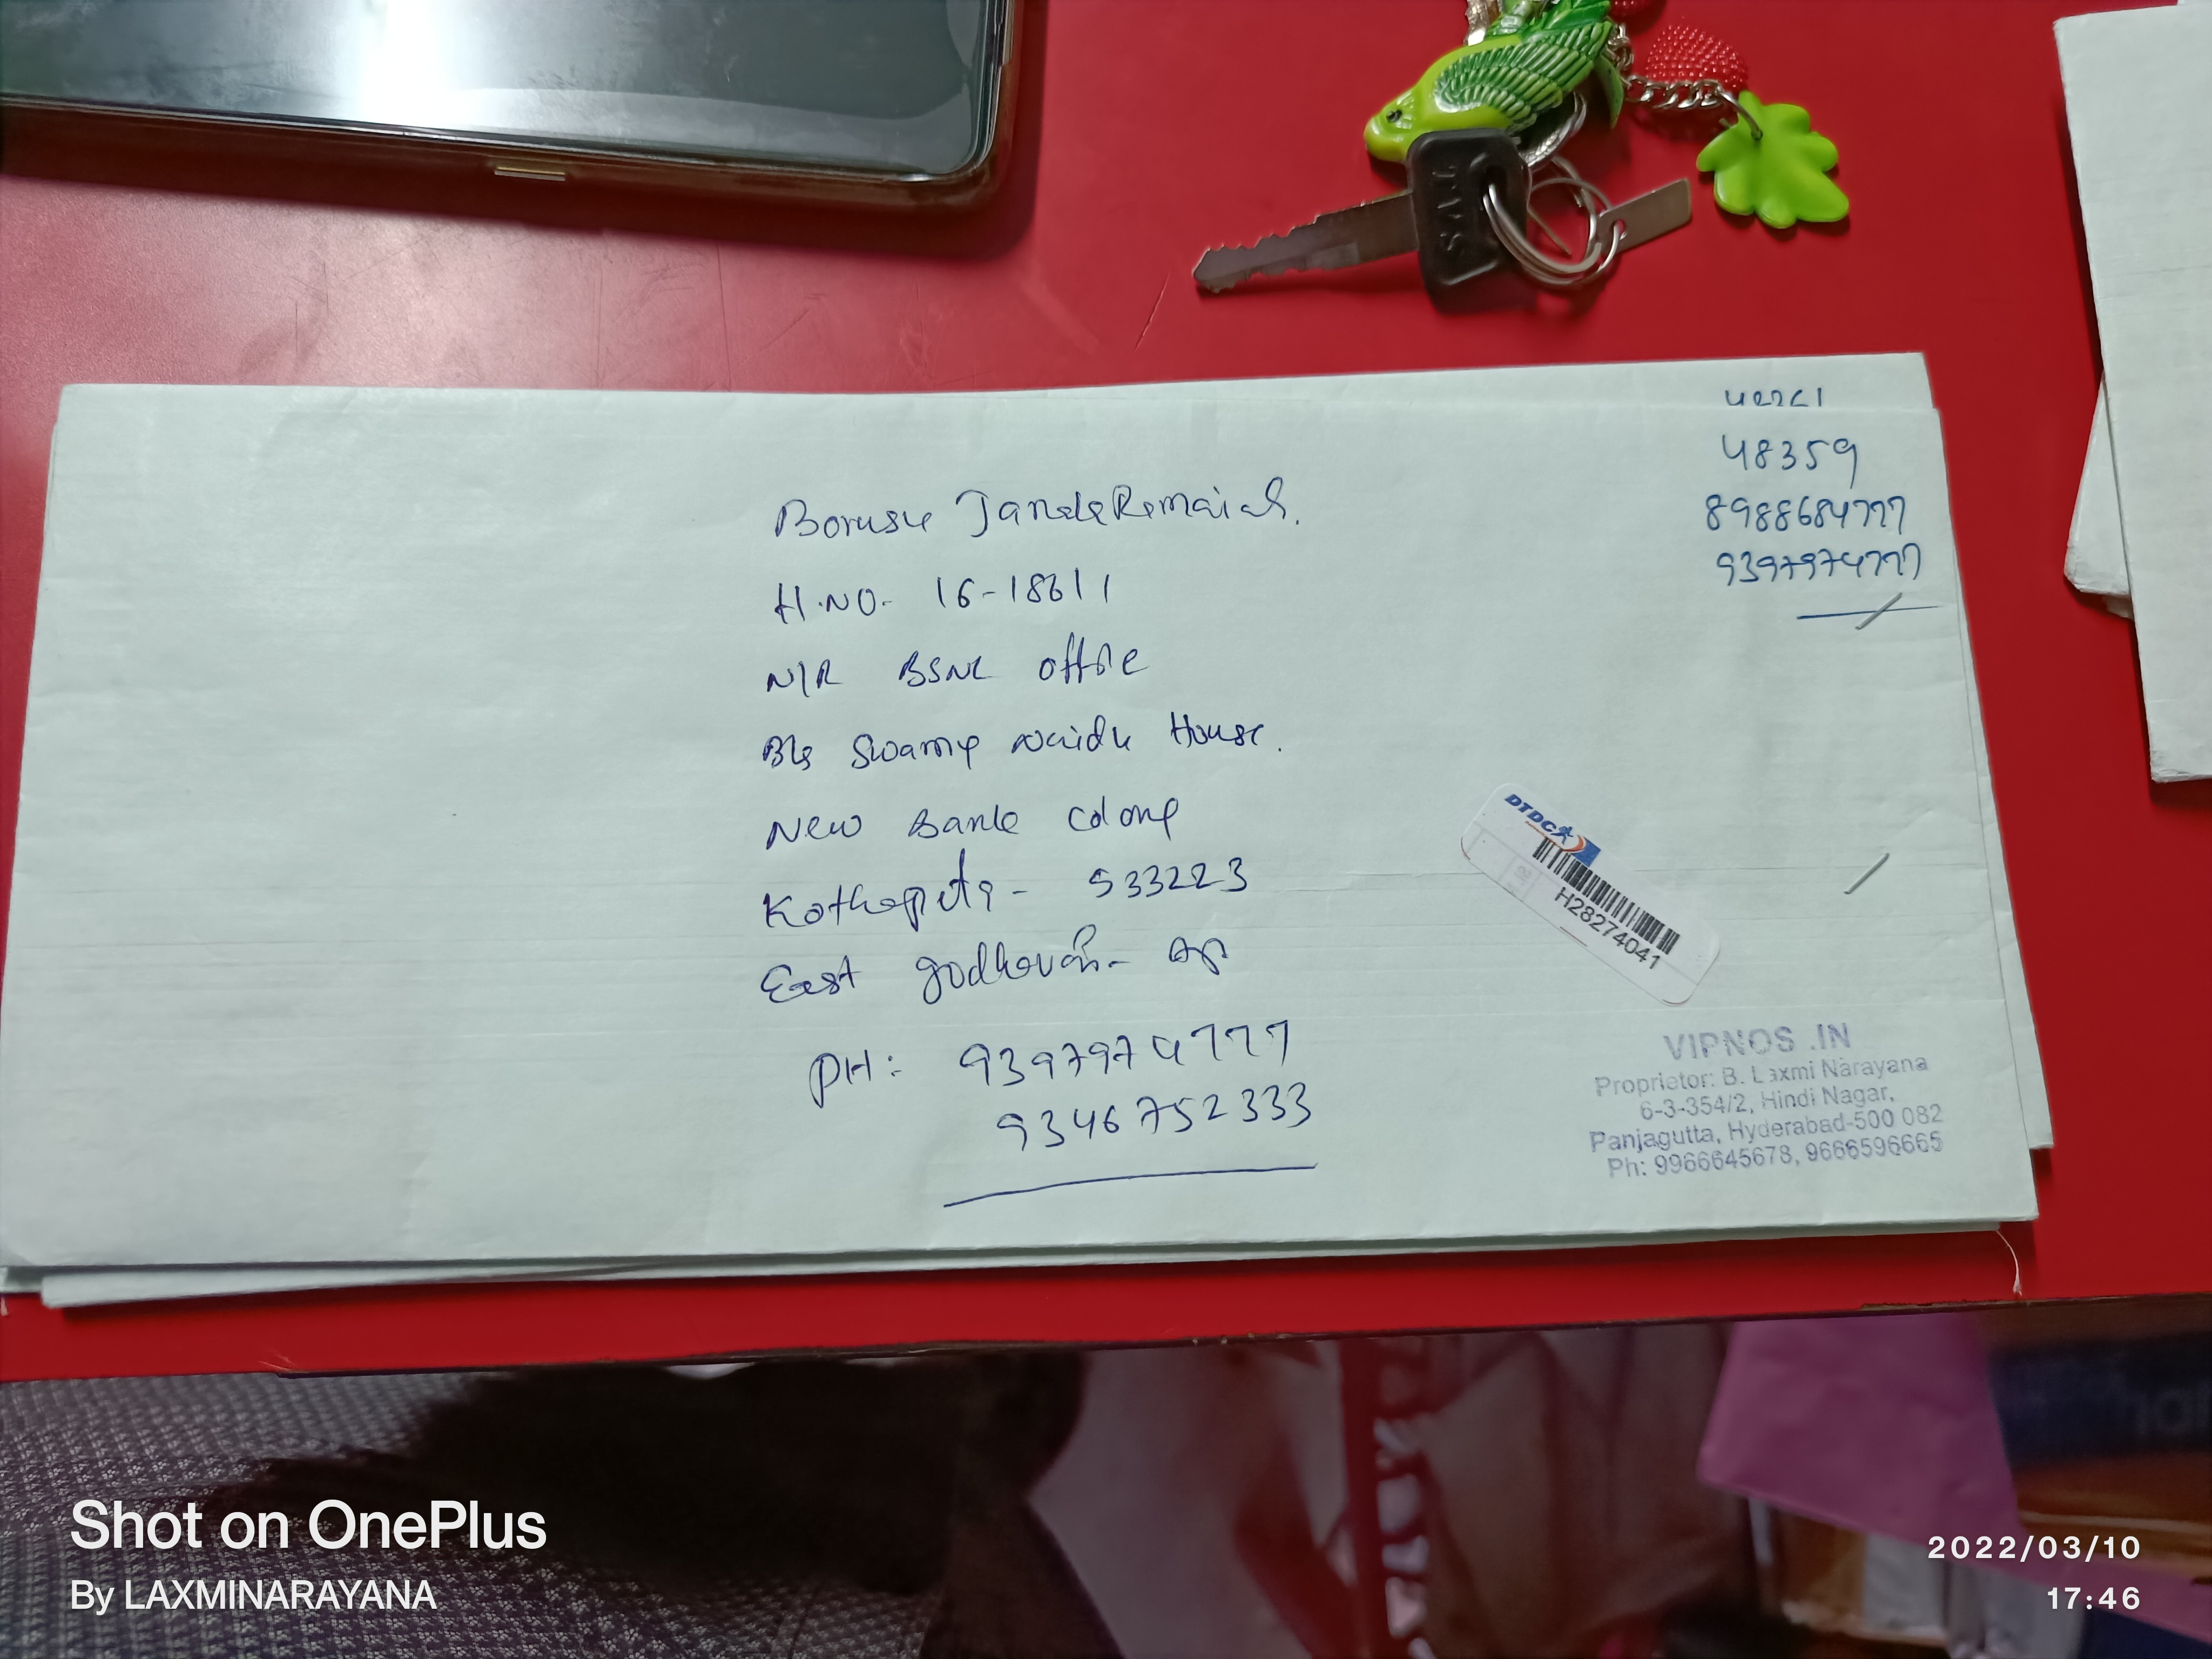 48359
8988684777
9397974777
Borusu JanakaRamaiah.
H.NO. 16-18611
N/R BSNL office
Swamy Naidu House.
New Bank Colony
Kothapeta - 533223
East godhavari - AP
PH: 9397974777
9346752333
DTDC
H28274041
VIPNOS .IN
Proprietor: B. Laxmi Narayana
6-3-354/2, Hindi Nagar,
Panjagutta, Hyderabad-500 082
Ph: 9966645678, 9666596665
TVS
Shot on OnePlus
By LAXMINARAYANA
2022/03/10
17:46